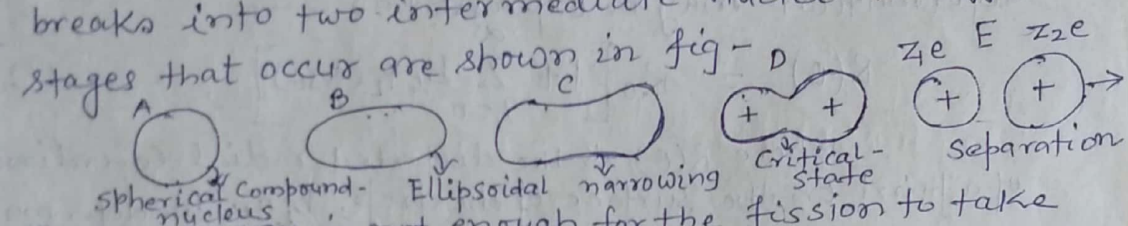 breaks into two intermediate
stages that occur are shown in fig-
A B C D Z1e E Z2e
+ + + +
Spherical Compound- nucleus
Ellipsoidal
narrowing
Critical- state
Separation
enough for the fission to take